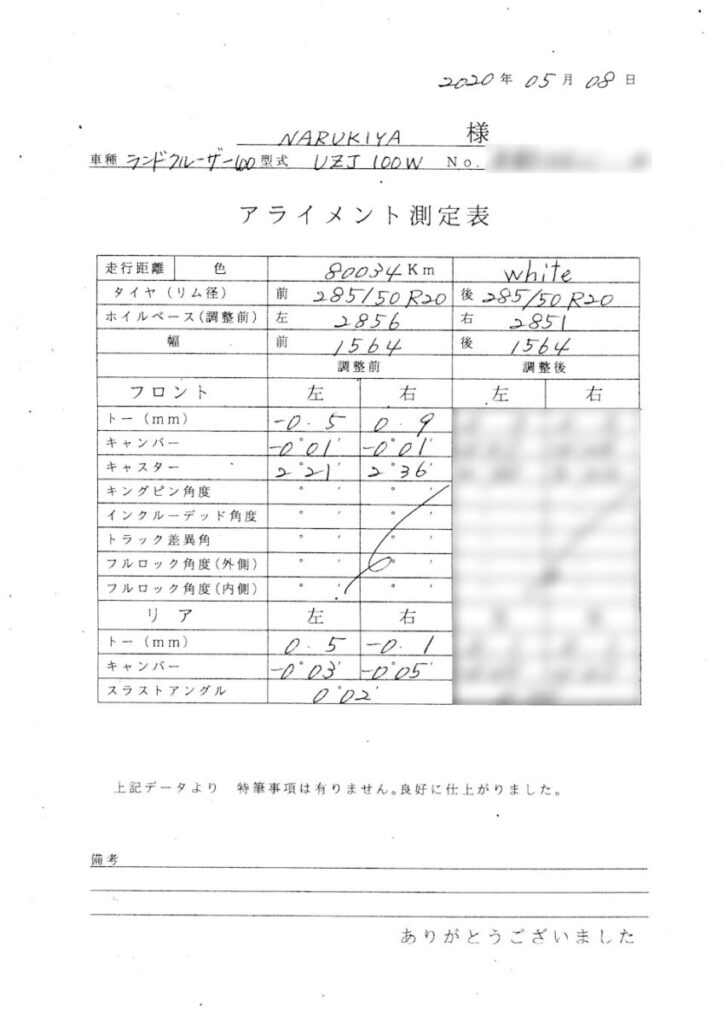 2020年 05月 08日
NARUKIYA 様
車種 ランドクルーザー100 型式 UZJ 100W No.
アライメント測定表
走行距離 色 80034Km white
タイヤ(リム径) 前 285/50 R20 後 285/50 R20
ホイルベース(調整前) 左 2856 右 2851
幅 前 1564 後 1564
調整前 調整後
フロント 左 右 左 右
トー(mm) -0.5 0.9
キャンバー -0°01′ -0°01′
キャスター 2°21′ 2°36′
キングピン角度 ° ′ ° ′
インクルーデッド角度 ° ′ ° ′
トラック差異角 ° ′ ° ′
フルロック角度(外側) ° ′ ° ′
フルロック角度(内側) ° ′ ° ′
リア 左 右
トー(mm) 0.5 -0.1
キャンバー -0°03′ -0°05′
スラストアングル 0°02′
上記データより 特筆事項は有りません。良好に仕上がりました。
備考
ありがとうございました